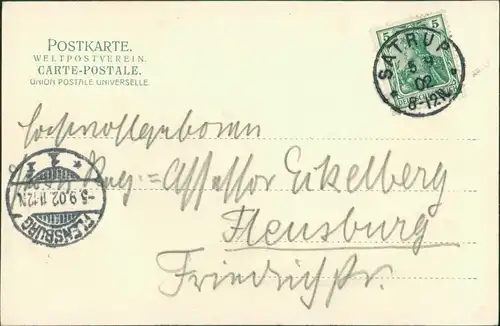 POSTKARTE.
WELTPOSTVEREIN.
CARTE-POSTALE.
UNION POSTALE UNIVERSELLE.
5 5
SATRUP
5 9
02
8-12N.
Hochwohlgeboren
Reg.=Assessor Eikelberg
Flensburg
Friedrichstr.
* 1 1 *
-5.9.02.11-12N.
FLENSBURG